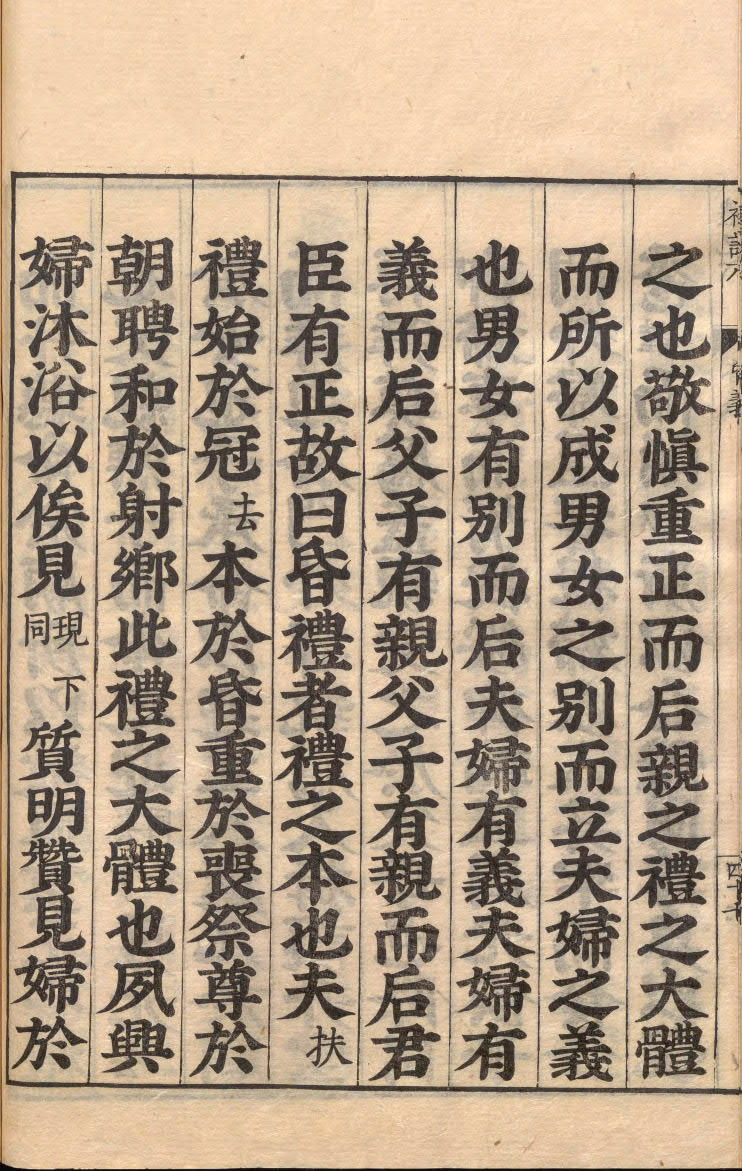 之也敬愼重正而后親之禮之大體
而所以成男女之别而立夫婦之義
也男女有别而后夫婦有義夫婦有
義而后父子有親父子有親而后君
臣有正故曰昏禮者禮之本也夫扶
禮始於冠去本於昏重於喪祭尊於
朝聘和於射鄉此禮之大體也夙興
婦沐浴以俟見現下同質明贊見婦於